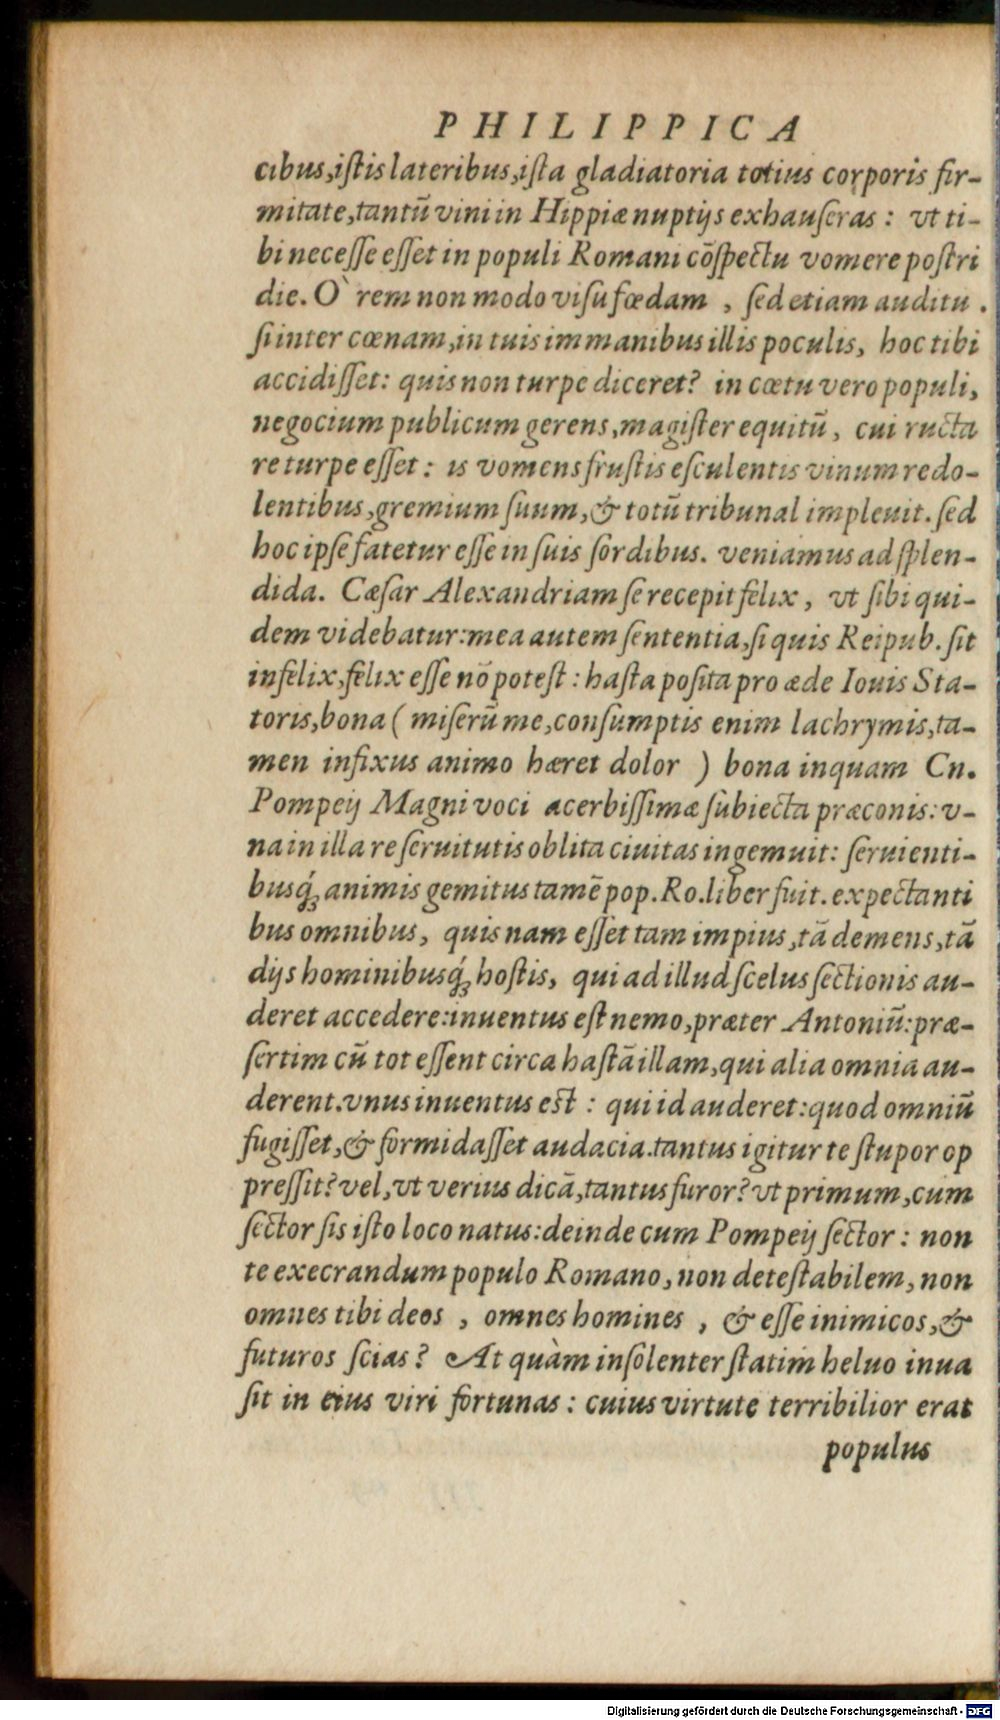 PHILIPPICA
cibus,iſtis lateribus,iſta gladiatoria totius corporis fir-
mitate,tantū vini in Hippiæ nuptijs exhauſeras: vt ti-
bi neceſſe eſſet in populi Romani cōſpectu vomere poſtri
die. Ò rem non modo viſu fœdam , ſed etiam auditu .
ſi inter cœnam,in tuis immanibus illis poculis, hoc tibi
accidiſſet: quis non turpe diceret? in cœtu vero populi,
negocium publicum gerens,magiſter equitū, cui ructa
re turpe eſſet: is vomens fruſtis eſculentis vinum redo-
lentibus,gremium ſuum,& totū tribunal impleuit. ſed
hoc ipſe fatetur eſſe in ſuis ſordibus. veniamus ad ſplen-
dida. Cæſar Alexandriam ſe recepit felix, vt ſibi qui-
dem videbatur:mea autem ſententia,ſi quis Reipub. ſit
infelix,felix eſſe nō poteſt: haſta poſita pro æde Iouis Sta-
toris,bona ( miſerū me,conſumptis enim lachrymis,ta-
men infixus animo hæret dolor ) bona inquam Cn.
Pompeij Magni voci acerbiſſimæ ſubiecta præconis: v-
na in illa re ſeruitutis oblita ciuitas ingemuit: ſeruienti-
busq́; animis gemitus tamē pop. Ro. liber fuit. expectanti
bus omnibus, quis nam eſſet tam impius,tā demens,tā
dijs hominibusq́; hoſtis, qui ad illud ſcelus ſectionis au-
deret accedere:inuentus eſt nemo,præter Antoniū:præ-
ſertim cū tot eſſent circa haſtā illam,qui alia omnia au-
derent.vnus inuentus est : qui id auderet:quod omniū
fugiſſet,& formidaſſet audacia.tantus igitur te ſtupor op
preſſit?vel,vt verius dicā,tantus furor?vt primum,cum
ſector ſis iſto loco natus:deinde cum Pompeij ſector: non
te execrandum populo Romano,non deteſtabilem,non
omnes tibi deos , omnes homines , & eſſe inimicos,&
futuros ſcias? At quàm inſolenter ſtatim heluo inua
ſit in eius viri fortunas: cuius virtute terribilior erat
populus
Digitalisierung gefördert durch die Deutsche Forschungsgemeinschaft - DFG